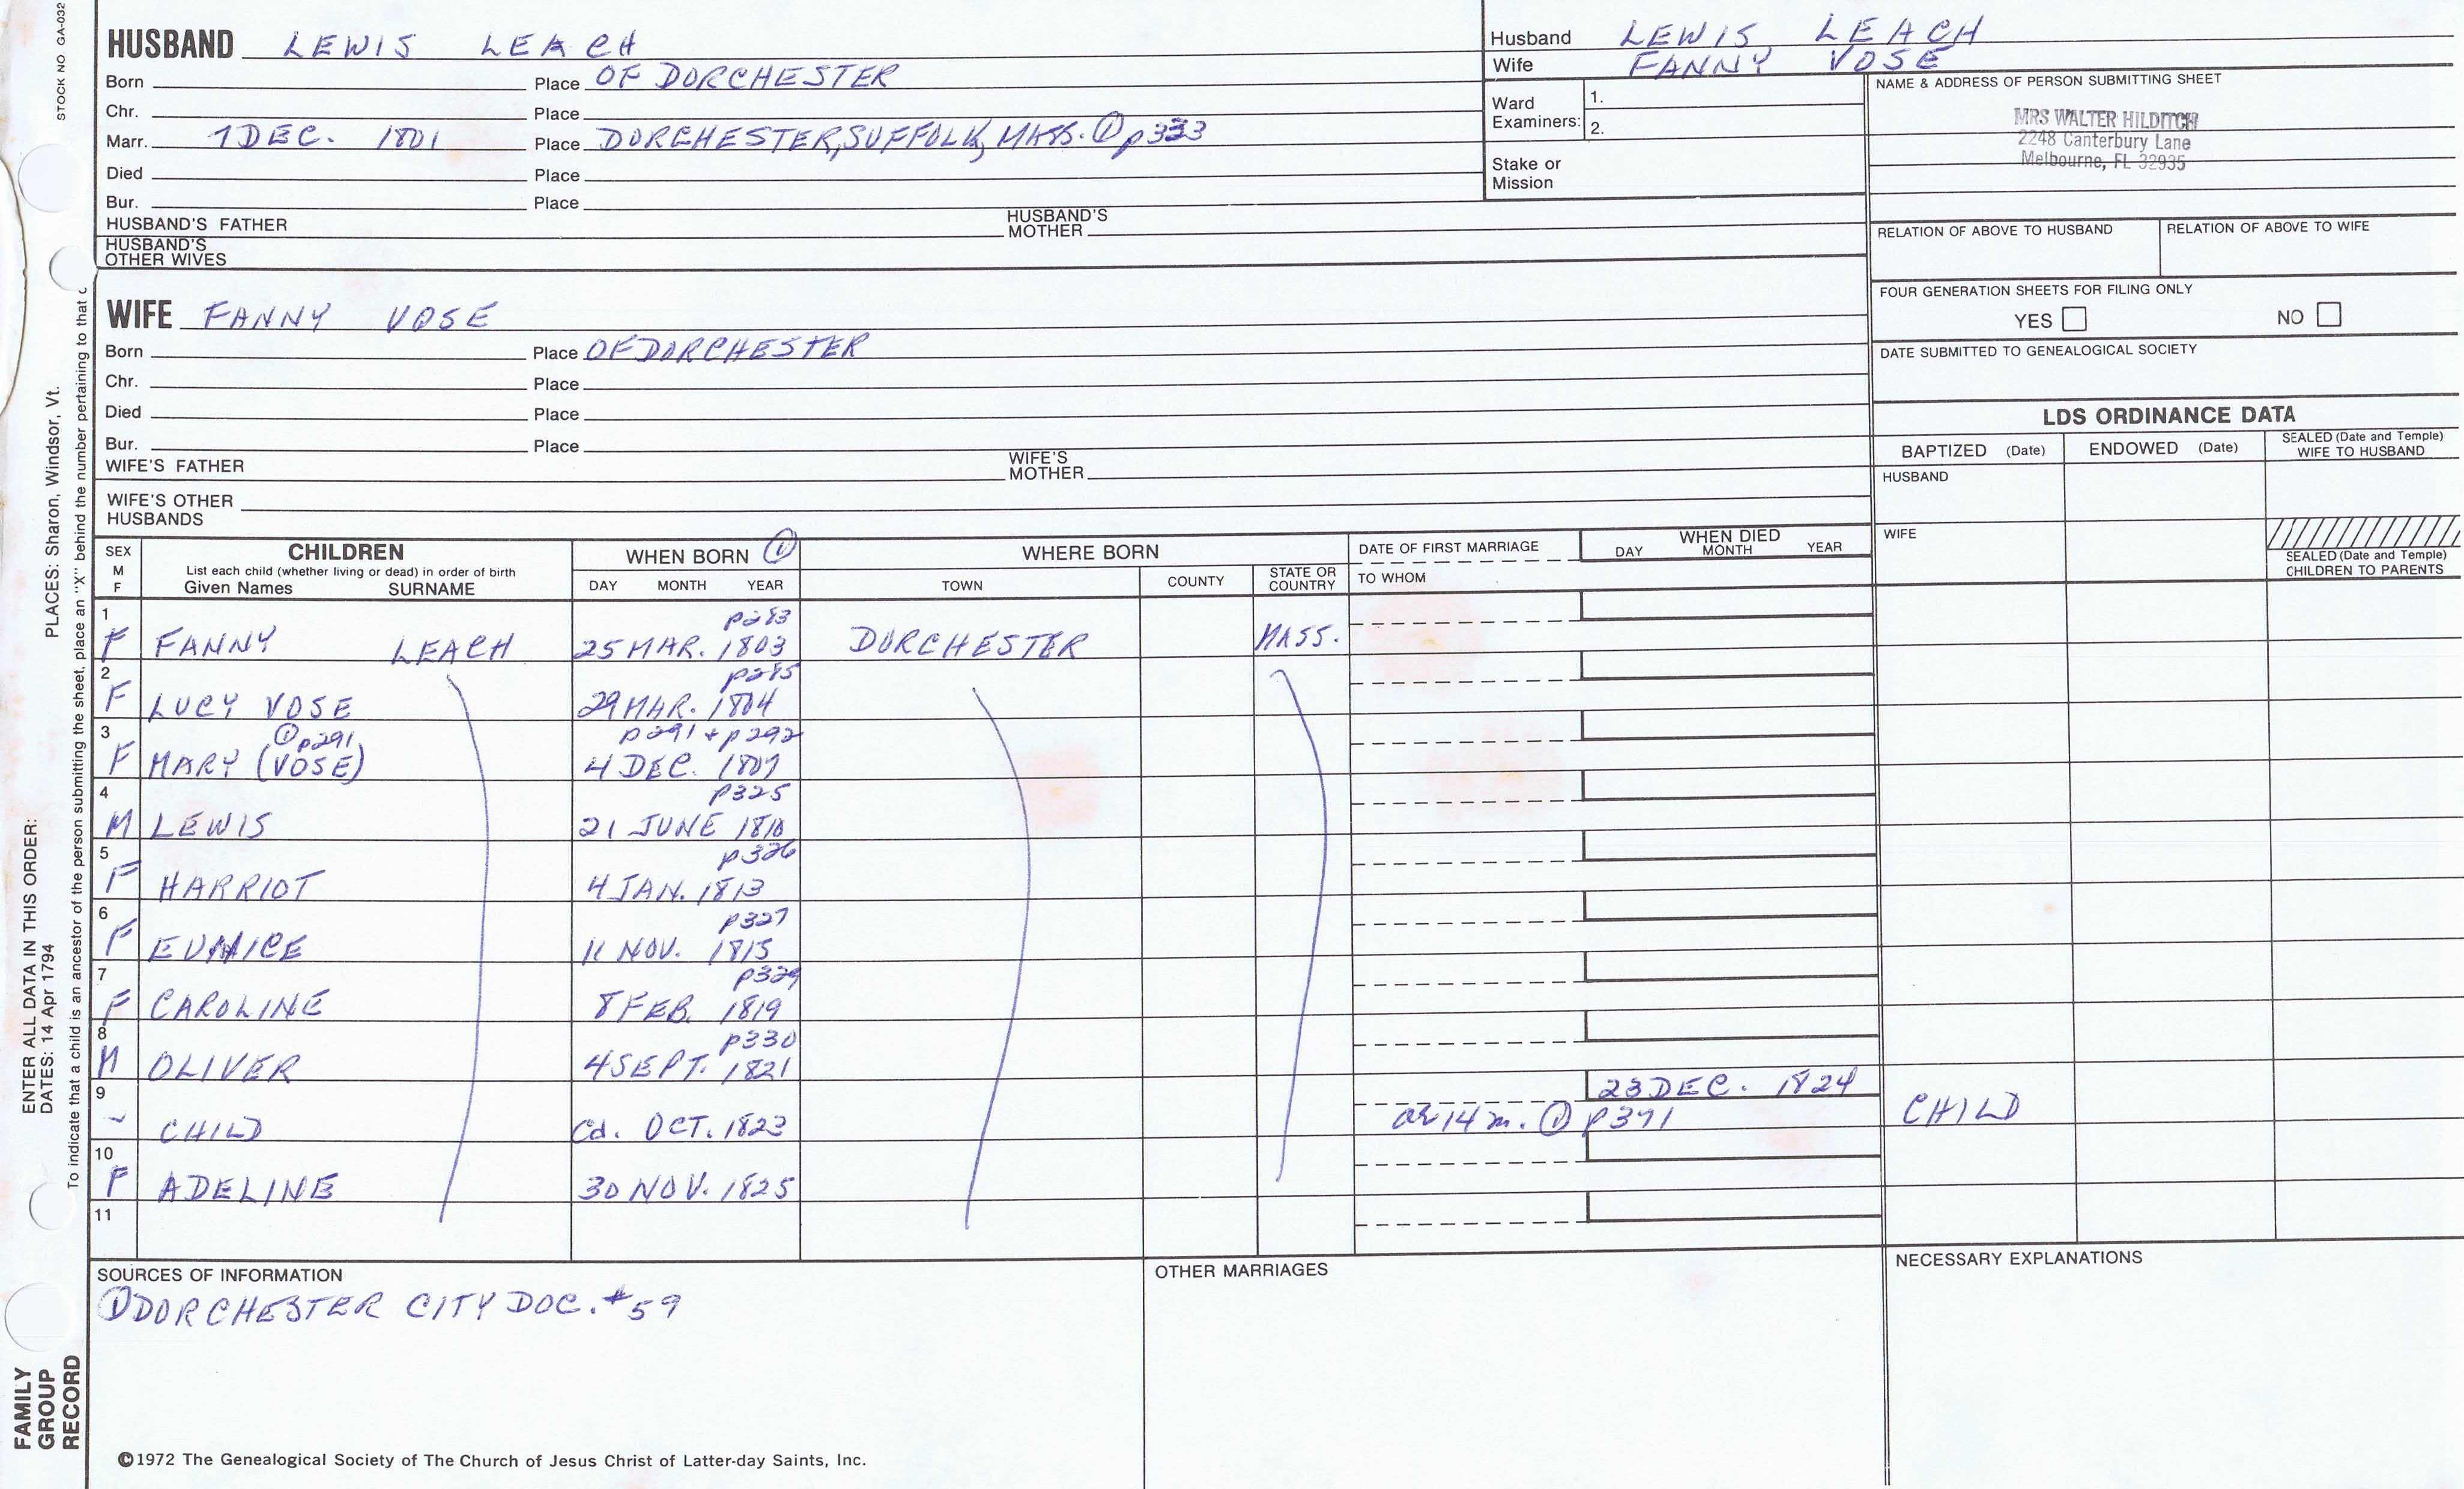 STOCK NO GA-032
HUSBAND LEWIS LEACH
Born Place OF DORCHESTER
Chr. Place
Marr. 7 DEC. 1801 Place DORCHESTER, SUFFOLK, MASS. ① p333
Died Place
Bur. Place
HUSBAND'S FATHER HUSBAND'S MOTHER
HUSBAND'S OTHER WIVES
Husband LEWIS LEACH
Wife FANNY VOSE
Ward Examiners: 1.
2.
Stake or Mission
NAME & ADDRESS OF PERSON SUBMITTING SHEET
MRS WALTER HILDITCH
2248 Canterbury Lane
Melbourne, FL 32935
RELATION OF ABOVE TO HUSBAND RELATION OF ABOVE TO WIFE
FOUR GENERATION SHEETS FOR FILING ONLY
YES NO
DATE SUBMITTED TO GENEALOGICAL SOCIETY
WIFE FANNY VOSE
Born Place OF DORCHESTER
Chr. Place
Died Place
Bur. Place
WIFE'S FATHER WIFE'S MOTHER
WIFE'S OTHER HUSBANDS
LDS ORDINANCE DATA
BAPTIZED (Date) ENDOWED (Date) SEALED (Date and Temple) WIFE TO HUSBAND
HUSBAND
WIFE
SEALED (Date and Temple) CHILDREN TO PARENTS
SEX M F
CHILDREN
List each child (whether living or dead) in order of birth
Given Names SURNAME
WHEN BORN ①
DAY MONTH YEAR
WHERE BORN
TOWN COUNTY STATE OR COUNTRY
DATE OF FIRST MARRIAGE
TO WHOM
WHEN DIED
DAY MONTH YEAR
1 p283
F FANNY LEACH 25 MAR. 1803 DORCHESTER MASS.
2 p285
F LUCY VOSE 29 MAR. 1804
3 ① p291 p291 + p292
F MARY (VOSE) 4 DEC. 1807
4 p325
M LEWIS 21 JUNE 1810
5 p326
F HARRIOT 4 JAN. 1813
6 p327
F EUNICE 11 NOV. 1815
7 p329
F CAROLINE 8 FEB. 1819
8 p330
M OLIVER 4 SEPT. 1821
9 23 DEC. 1824
~ CHILD Cd. OCT. 1823 ae 14 m. ① p371 CHILD
10
F ADELINE 30 NOV. 1825
11
SOURCES OF INFORMATION
① DORCHESTER CITY DOC. #59
OTHER MARRIAGES
NECESSARY EXPLANATIONS
©1972 The Genealogical Society of The Church of Jesus Christ of Latter-day Saints, Inc.
FAMILY GROUP RECORD
ENTER ALL DATA IN THIS ORDER:
DATES: 14 Apr 1794
PLACES: Sharon, Windsor, Vt.
To indicate that a child is an ancestor of the person submitting the sheet, place an "X" behind the number pertaining to that c